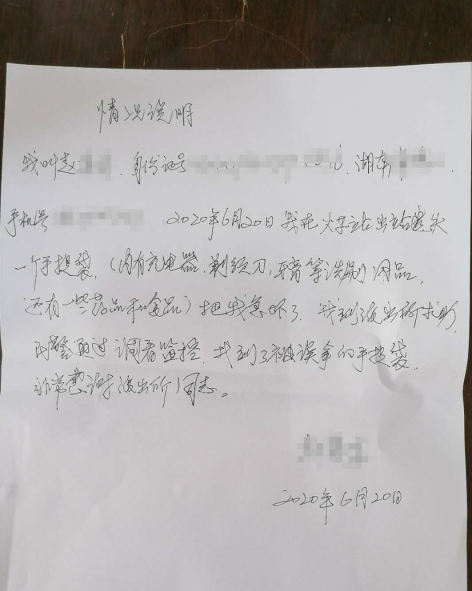 情况说明
我叫赵 身份证号 湖南
手机号 2020年6月20日我在火车站出站丢失
一个手提袋，(内有充电器，剃须刀，牙膏等洗刷用品，
还有一些药品和食品)把我急坏了，我到派出所求助，
民警通过调看监控，找到了被误拿的手提袋，
非常感谢派出所同志。
2020年6月20日